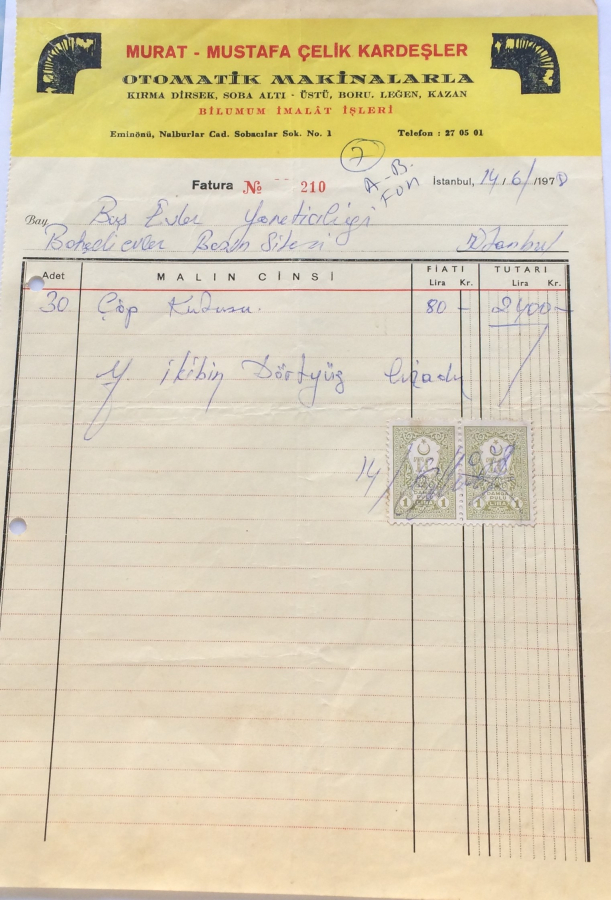 MURAT - MUSTAFA ÇELİK KARDEŞLER
OTOMATİK MAKİNALARLA
KIRMA DİRSEK, SOBA ALTI - ÜSTÜ, BORU, LEĞEN, KAZAN
BİLUMUM İMALÂT İŞLERİ
Eminönü, Nalburlar Cad. Sobacılar Sok. No. 1 Telefon : 27 05 01
7
A-B.
Fon
Fatura № 210 İstanbul, 14/6/1978
Bay Baş Evler Yöneticiliği
Bahçelievler Basın Sitesi İstanbul
Adet MALIN CİNSİ FİATI TUTARI
Lira Kr. Lira Kr.
30 Çöp Kutusu. 80 - 2400-
Y. ikibin Dörtyüz liradır
T.C. T.C.
14/6/1978
1 LİRA 1 1 LİRA 1